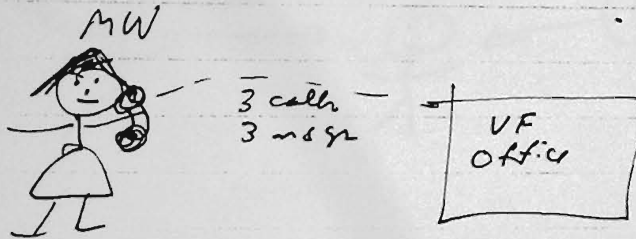 MW
3 calls
3 msgs
VF
Office